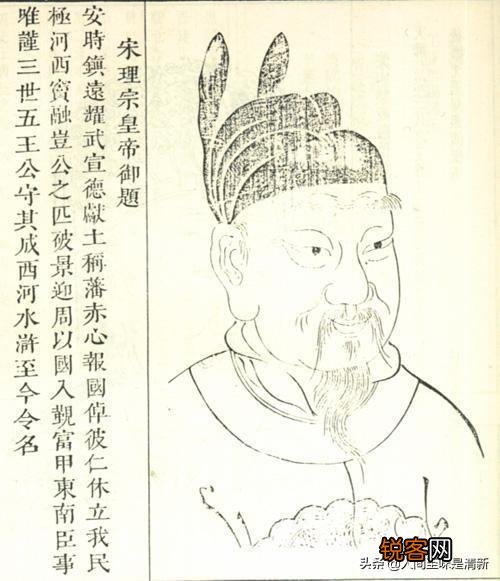 宋理宗皇帝御題
安時鎮遠耀武宣德獻土稱藩赤心報國倬彼仁休立我民
極河西竇融豈公之匹破景迎周以國入覲富甲東南臣事
唯謹三世五王公守其成西河水滸至今令名
锐客网
头条 @人间至味是清新